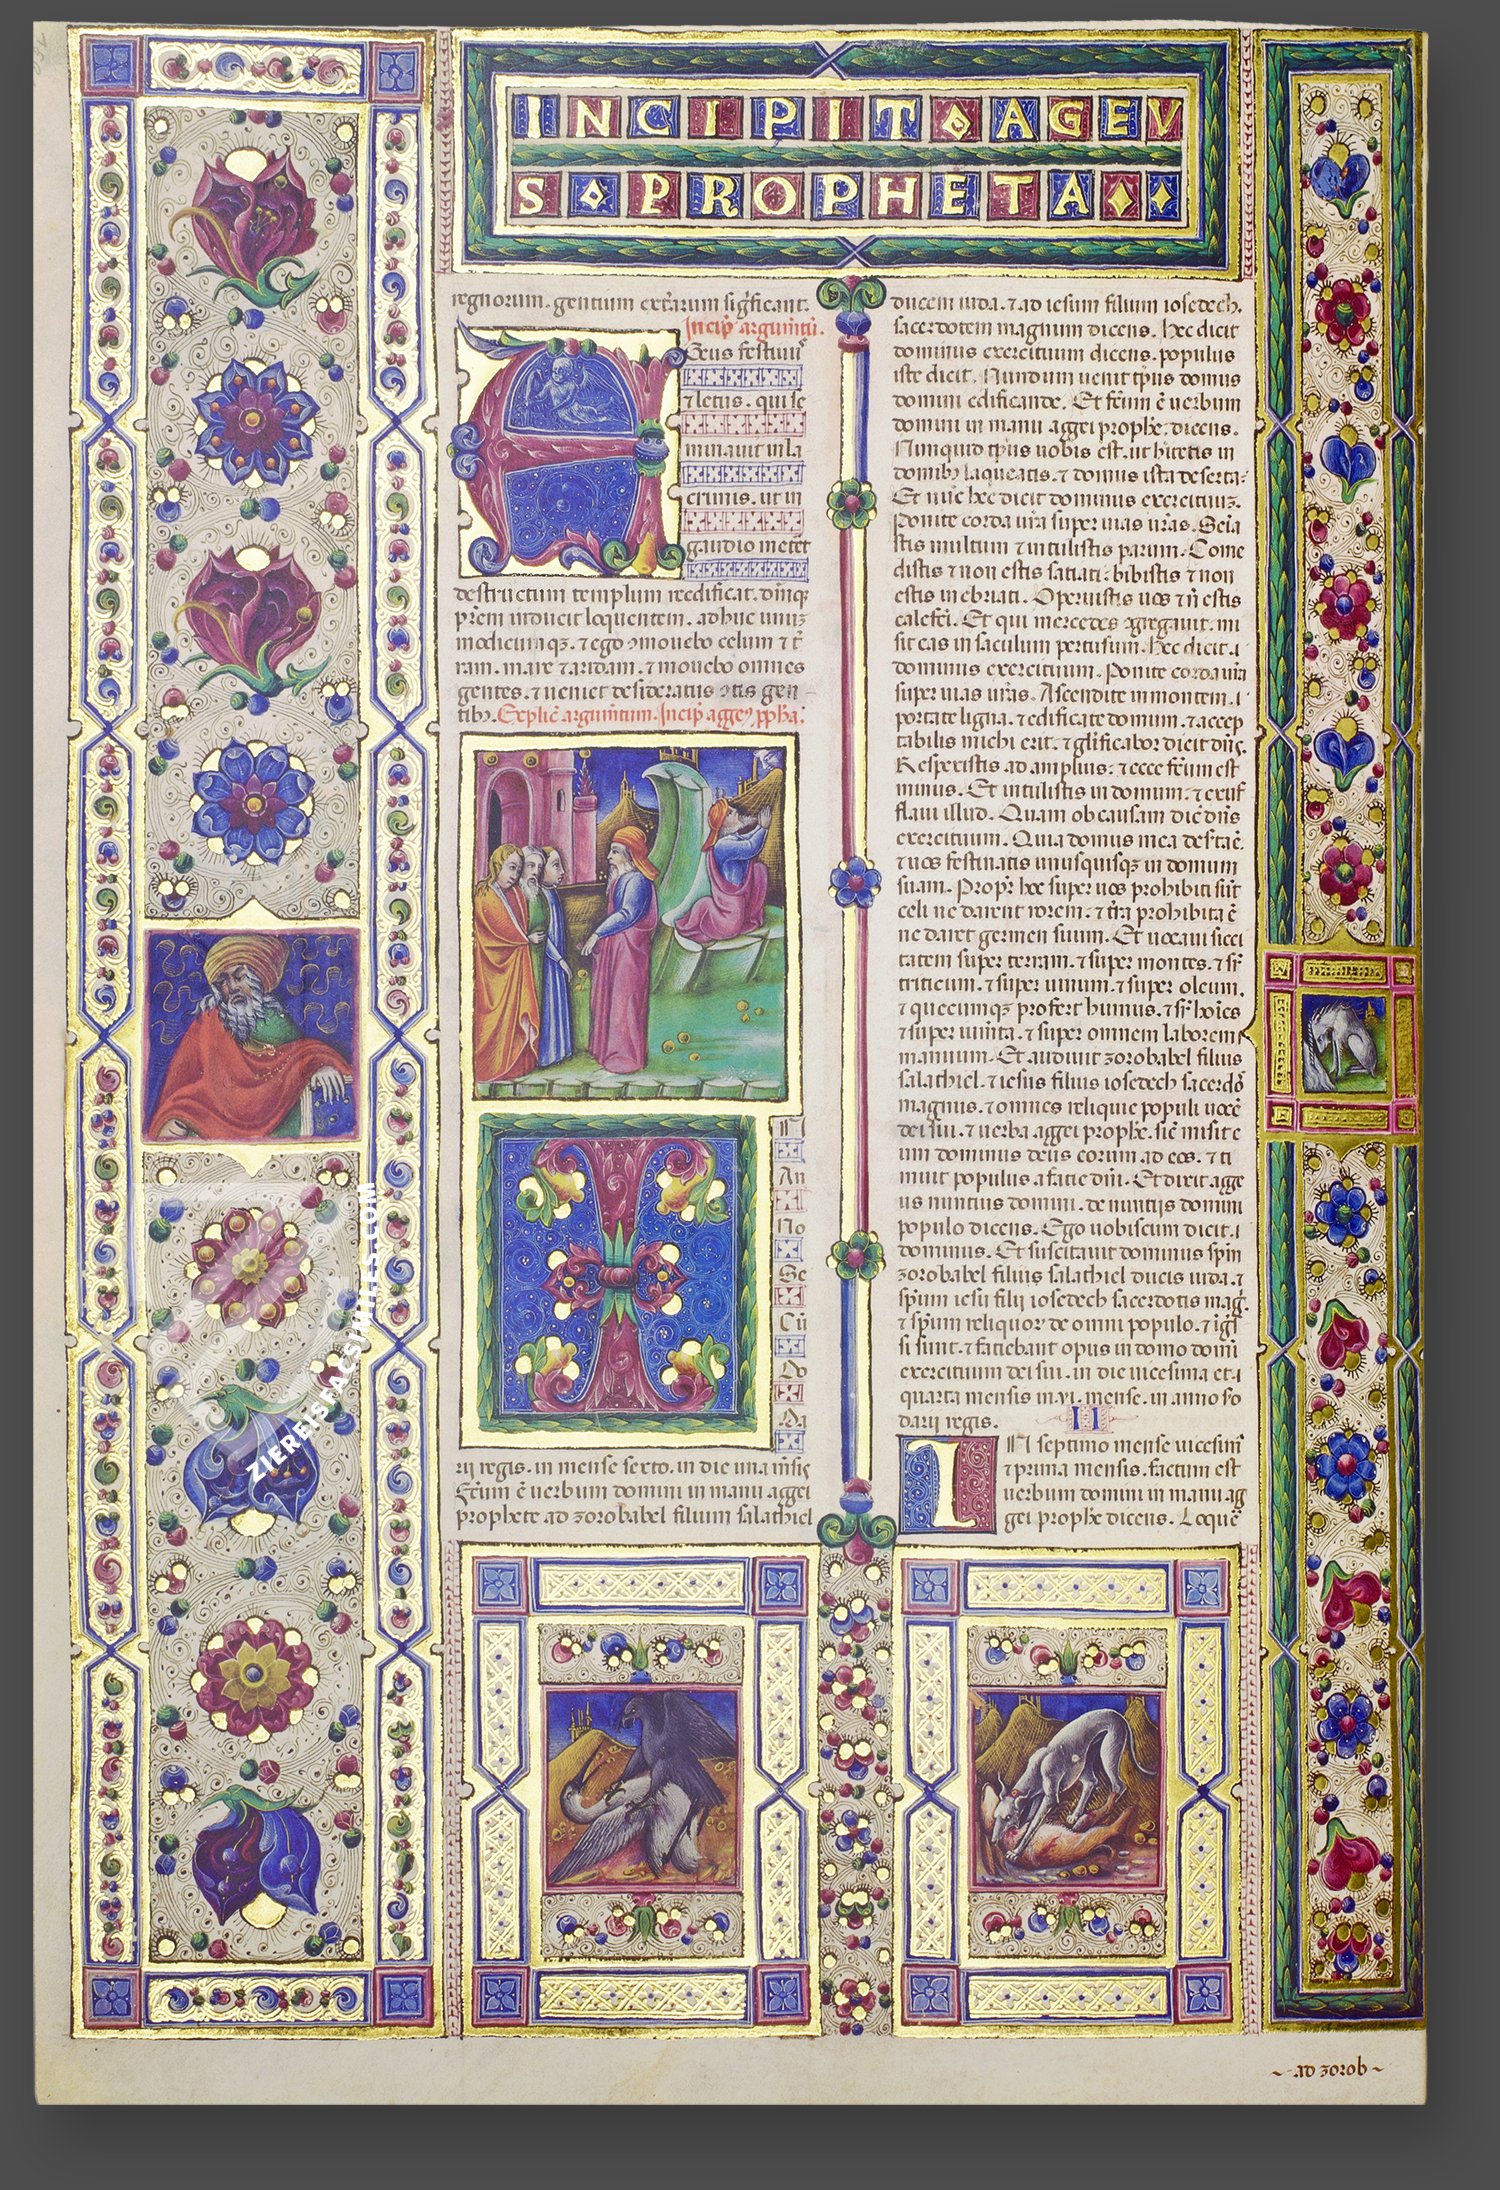 INCIPIT AGEV
S PROPHETA
regnorum. gentium
Incip̄
Geus festiuꝰ
⁊ letus. qui se
minauit in la
crimis. ut in
gaudio metet
destructum templum reedificat. dm̄qꝫ
pr̄em inducit loquentem. adhuc unuꝫ
modicumqꝫ. ⁊ ego ɔmouebo celum ⁊ t̄
ram. mare ⁊ aridam. ⁊ mouebo omnes
gentes. ⁊ ueniet desideratus gen
tibꝫ. Explic̄ Incip̄
N
An
No
Se
Cū
Do
Da
rij regis. in mense sexto. in die una
uerbum domini in manu aggei
prophete ad zorobabel filium salathiel
ducem iuda. ⁊ ad iesum filium iosedech.
sacerdotem magnum dicens. Hec dicit
dominus exercituum dicens. populus
iste dicit. Nundum uenit tp̄us domus
domini edificande. Et fc̄um ē uerbum
domini in manu aggei prophe. dicens.
Nunquid tp̄us uobis est. ut hitetis in
domibꝫ laqueatis. ⁊ domus ista deserta.
Et nūc hec dicit dominus exercituuꝫ.
Ponite corda ur̄a super uias ur̄as. Semina
stis multum ⁊ intulistis parum. Come
distis ⁊ non estis satiati. bibistis ⁊ non
estis inebriati. Operuistis uos ⁊ n̄ estis
calefc̄i. Et qui mercedes ɔgregauit. mi
sit eas in saculum pertusum. Hec dicit.
dominus exercituum. Ponite corda ur̄a
super uias ur̄as. Ascendite in montem.
portate ligna. ⁊ edificate domum. ⁊ accep
tabilis michi erit. ⁊ gl̄ificabor dicit
Respexistis ad amplius. ⁊ ecce fc̄um est
minus. Et intulistis in domum. ⁊ exuf
flaui illud. Quam ob causam dic̄ dn̄s
exercituum. Quia domus mea
⁊ uos festinatis unusquisqꝫ in domum
suam. Propt̄ hec super uos prohibiti sūt
celi ne darent rorem. ⁊ tr̄a prohibita ē
ne daret germen suum. Et uocaui sicci
tatem super terram. ⁊ super montes. ⁊
triticum. ⁊ super uinum. ⁊ super oleum.
⁊ quecumqꝫ profert humus. ⁊
⁊ super ⁊ super omnem laborem
manuum. Et audiuit zorobabel filius
salathiel. ⁊ iesus filius iosedech
magnus. ⁊ omnes reliquie populi
dei sui. ⁊ uerba aggei prophe. sic̄ misit e
um dominus deus eorum ad eos. ⁊ ti
muit populus a facie dn̄i. Et dixit agge
us nuntius domini. de nuntijs domini
populo dicens. Ego uobiscum dicit.
dominus. Et suscitauit dominus
zorobabel filius salathiel ducis iuda. ⁊
sp̄um iesu filij iosedech sacerdotis
⁊ sp̄um de omni populo. ⁊
si sunt. ⁊ faciebant opus in domo
exercituum dei sui. in die uicesima et
quarta mensis in .vi. mense. in anno
darij regis.
II
IN septimo mense
⁊ prima mensis. factum est
uerbum domini in manu ag
gei prophe dicens.
ad zorob
ZIEREISFACSIMILES.COM